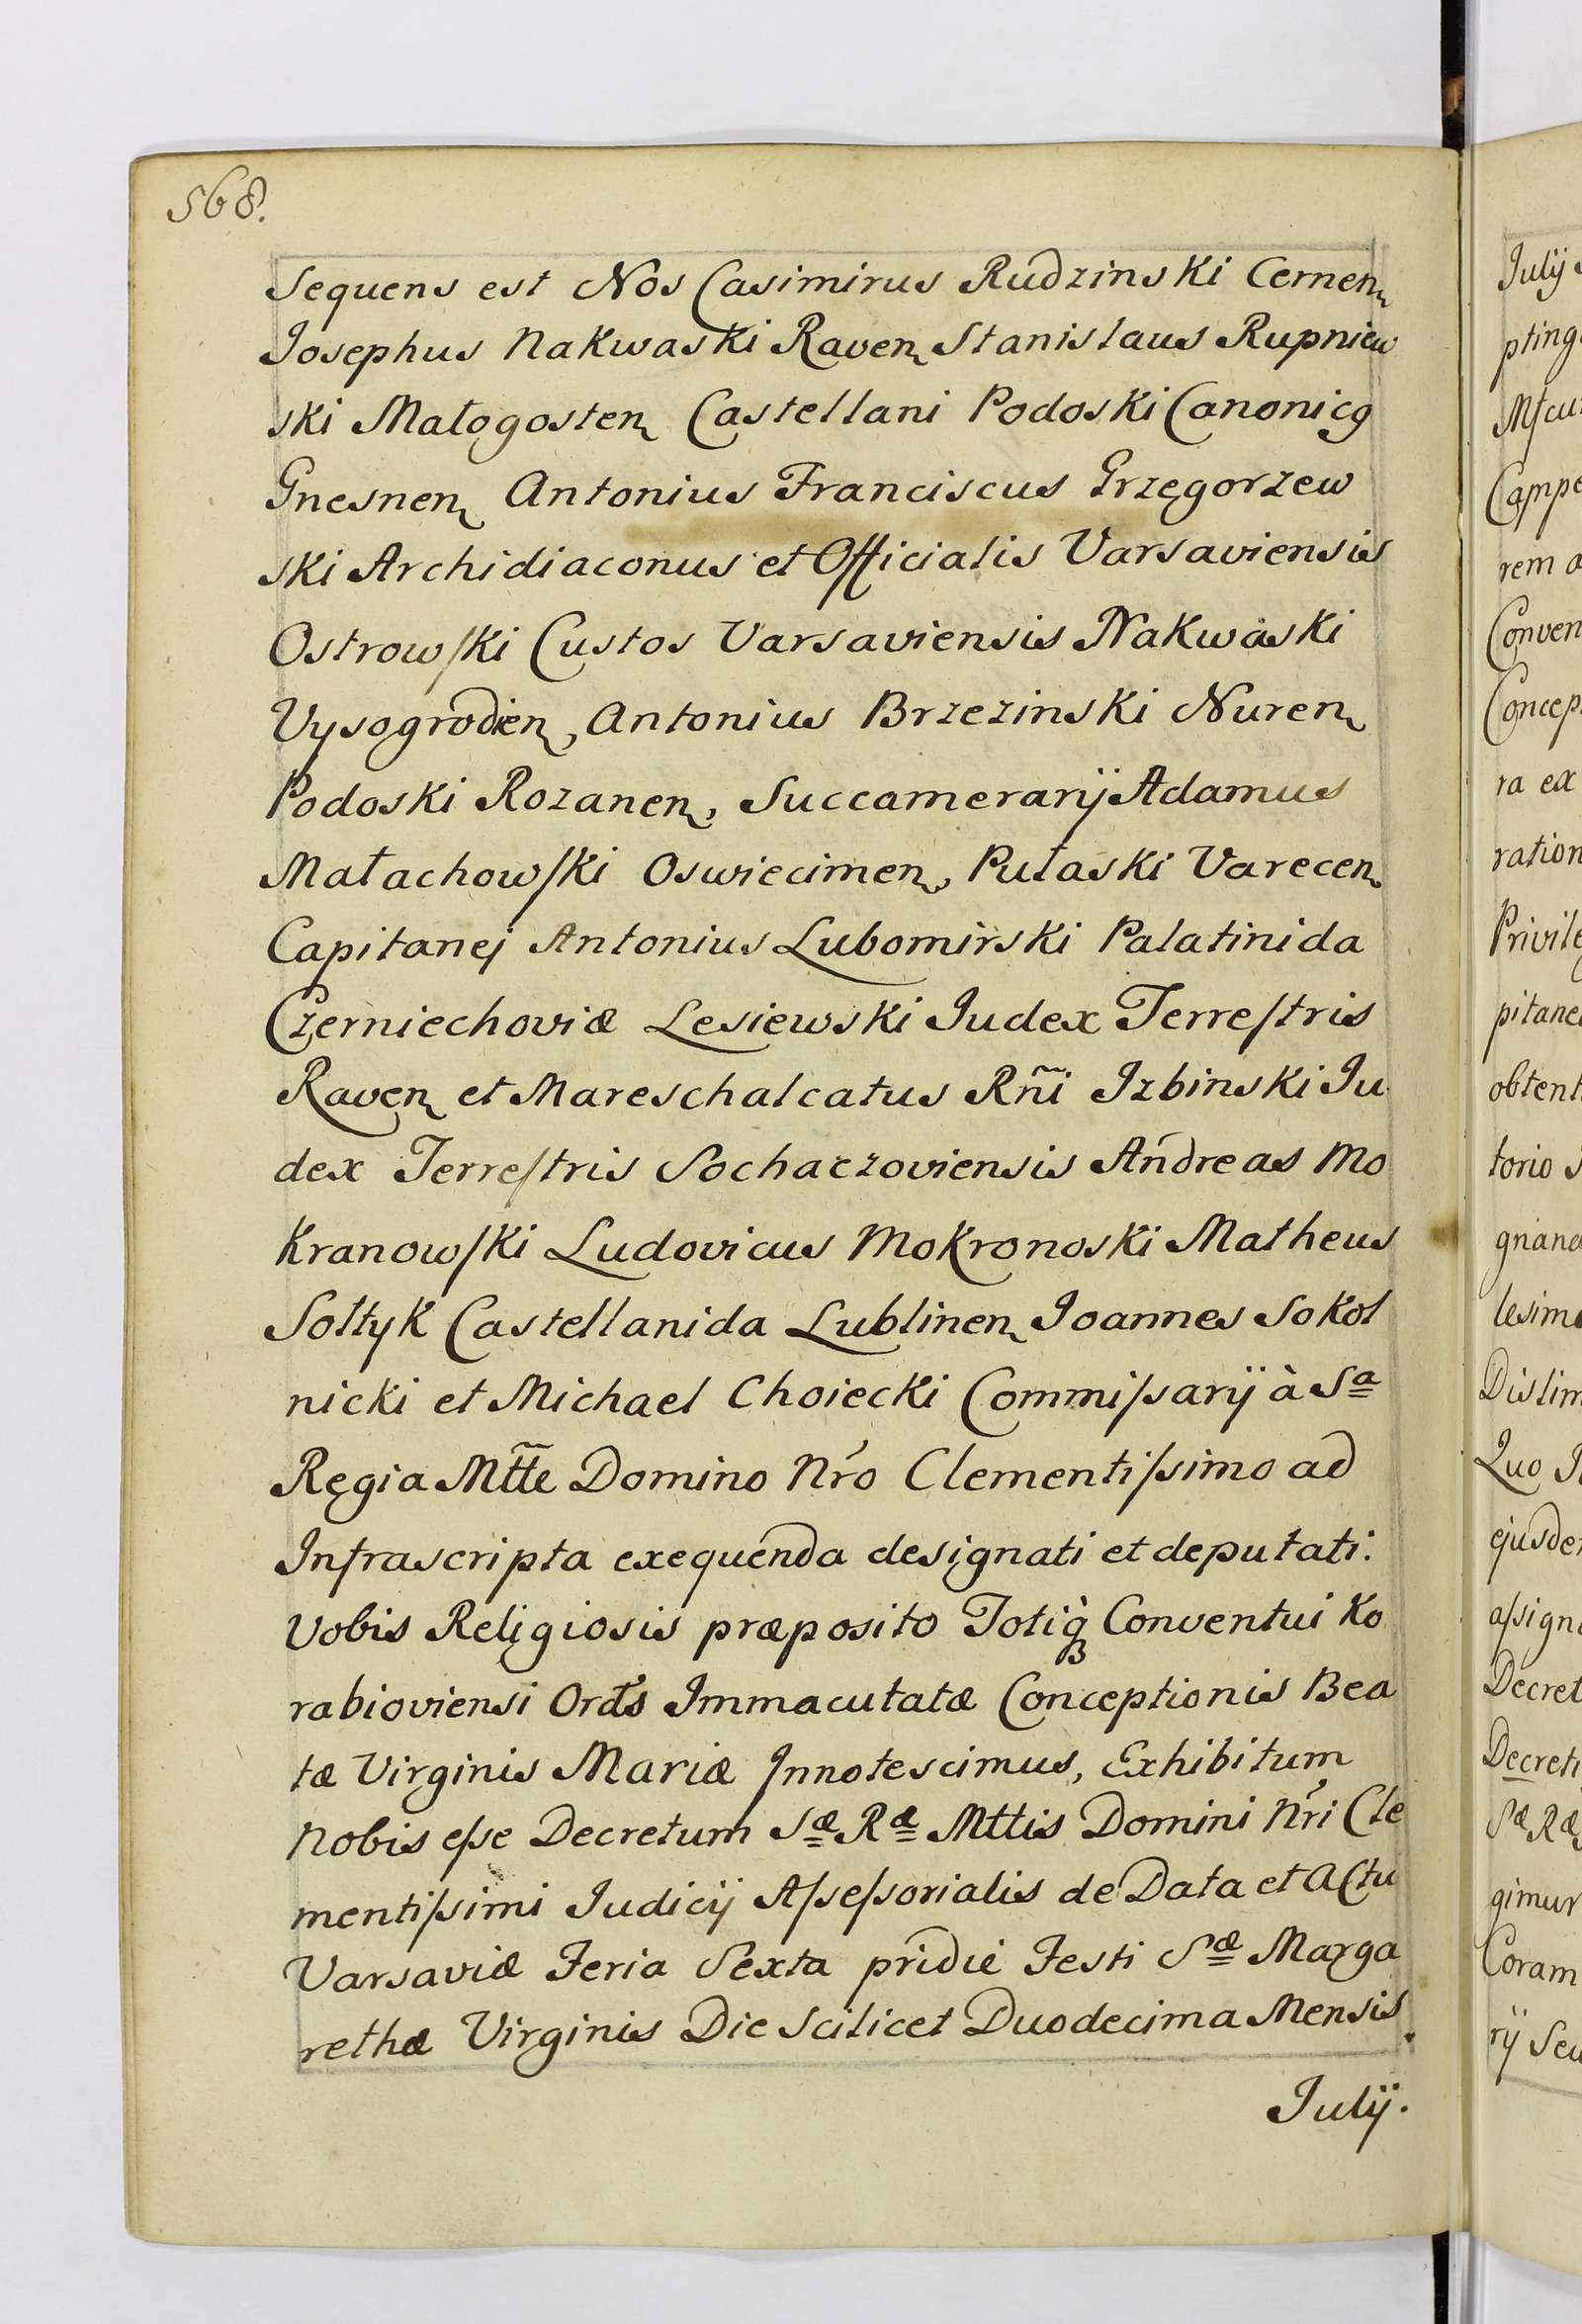 568.
Sequens est Nos Casimirus Rudzinski Cernen
Josephus Nakwaski Raven Stanislaus Rupniew
ski Małogosten Castellani Podoski Canonicg
Gnesnen Antonius Franciscus Grzegorzew
ski Archidiaconus et Officialis Varsaviensis
Ostrowſki Custos Varsaviensis Nakwaski
Vysogrodien, Antonius Brzezinski Nuren
Podoski Rozanen, Succamerarÿ Adamus
Małachowſki Oswiecimen, Pułaski Varecen
Capitanej Antonius Lubomirski Palatinida
Czerniechoviæ Lesiewski Judex Terreſtris
Raven et Mareschalcatus Rñi Izbinski Ju
dex Terreſtris Sochaczoviensis Andreas Mo
kranowſki Ludovicus Mokronoski Matheus
Sołtyk Castellanida Lublinen Joannes Sokol
nicki et Michael Choiecki Commiſsarÿ à Sa
Regia Mtte Domino Nro Clementiſsimo ad
Infrascripta exequenda designati et deputati.
Vobis Religiosis præposito Totiq Conventui Ko
rabioviensi Ordis Immaculatæ Conceptionis Bea
tæ Virginis Mariæ Innotescimus, Exhibitum
Nobis eſse Decretum Sæ Ræ Mttis Domini Nri Cle
mentiſsimi Judicij Aſseſsorialis de Data et Actu
Varsaviæ Feria Sexta pridie Festi Sæ Marga
rethæ Virginis Die Scilicet Duodecima Mensis.
Julÿ.
July
pting
Campe
rem a
Conven
Concep
ra ex
ration
Privile
pitane
obtent
torio s
gnana
lesim
Dislim
Quo J
ejusde
aſsign
Decret
Decreti
Sæ Ræ
gimur
Coram
rÿ Seu